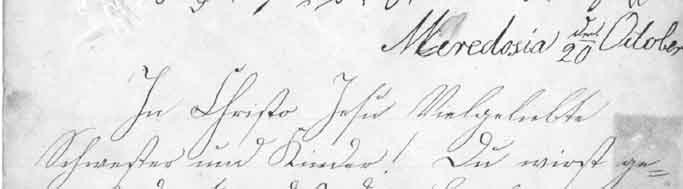 Meredosia den 20 October
In Christo Jesu Vielgeliebte
Schwester und Kinder! Du wirst ge=